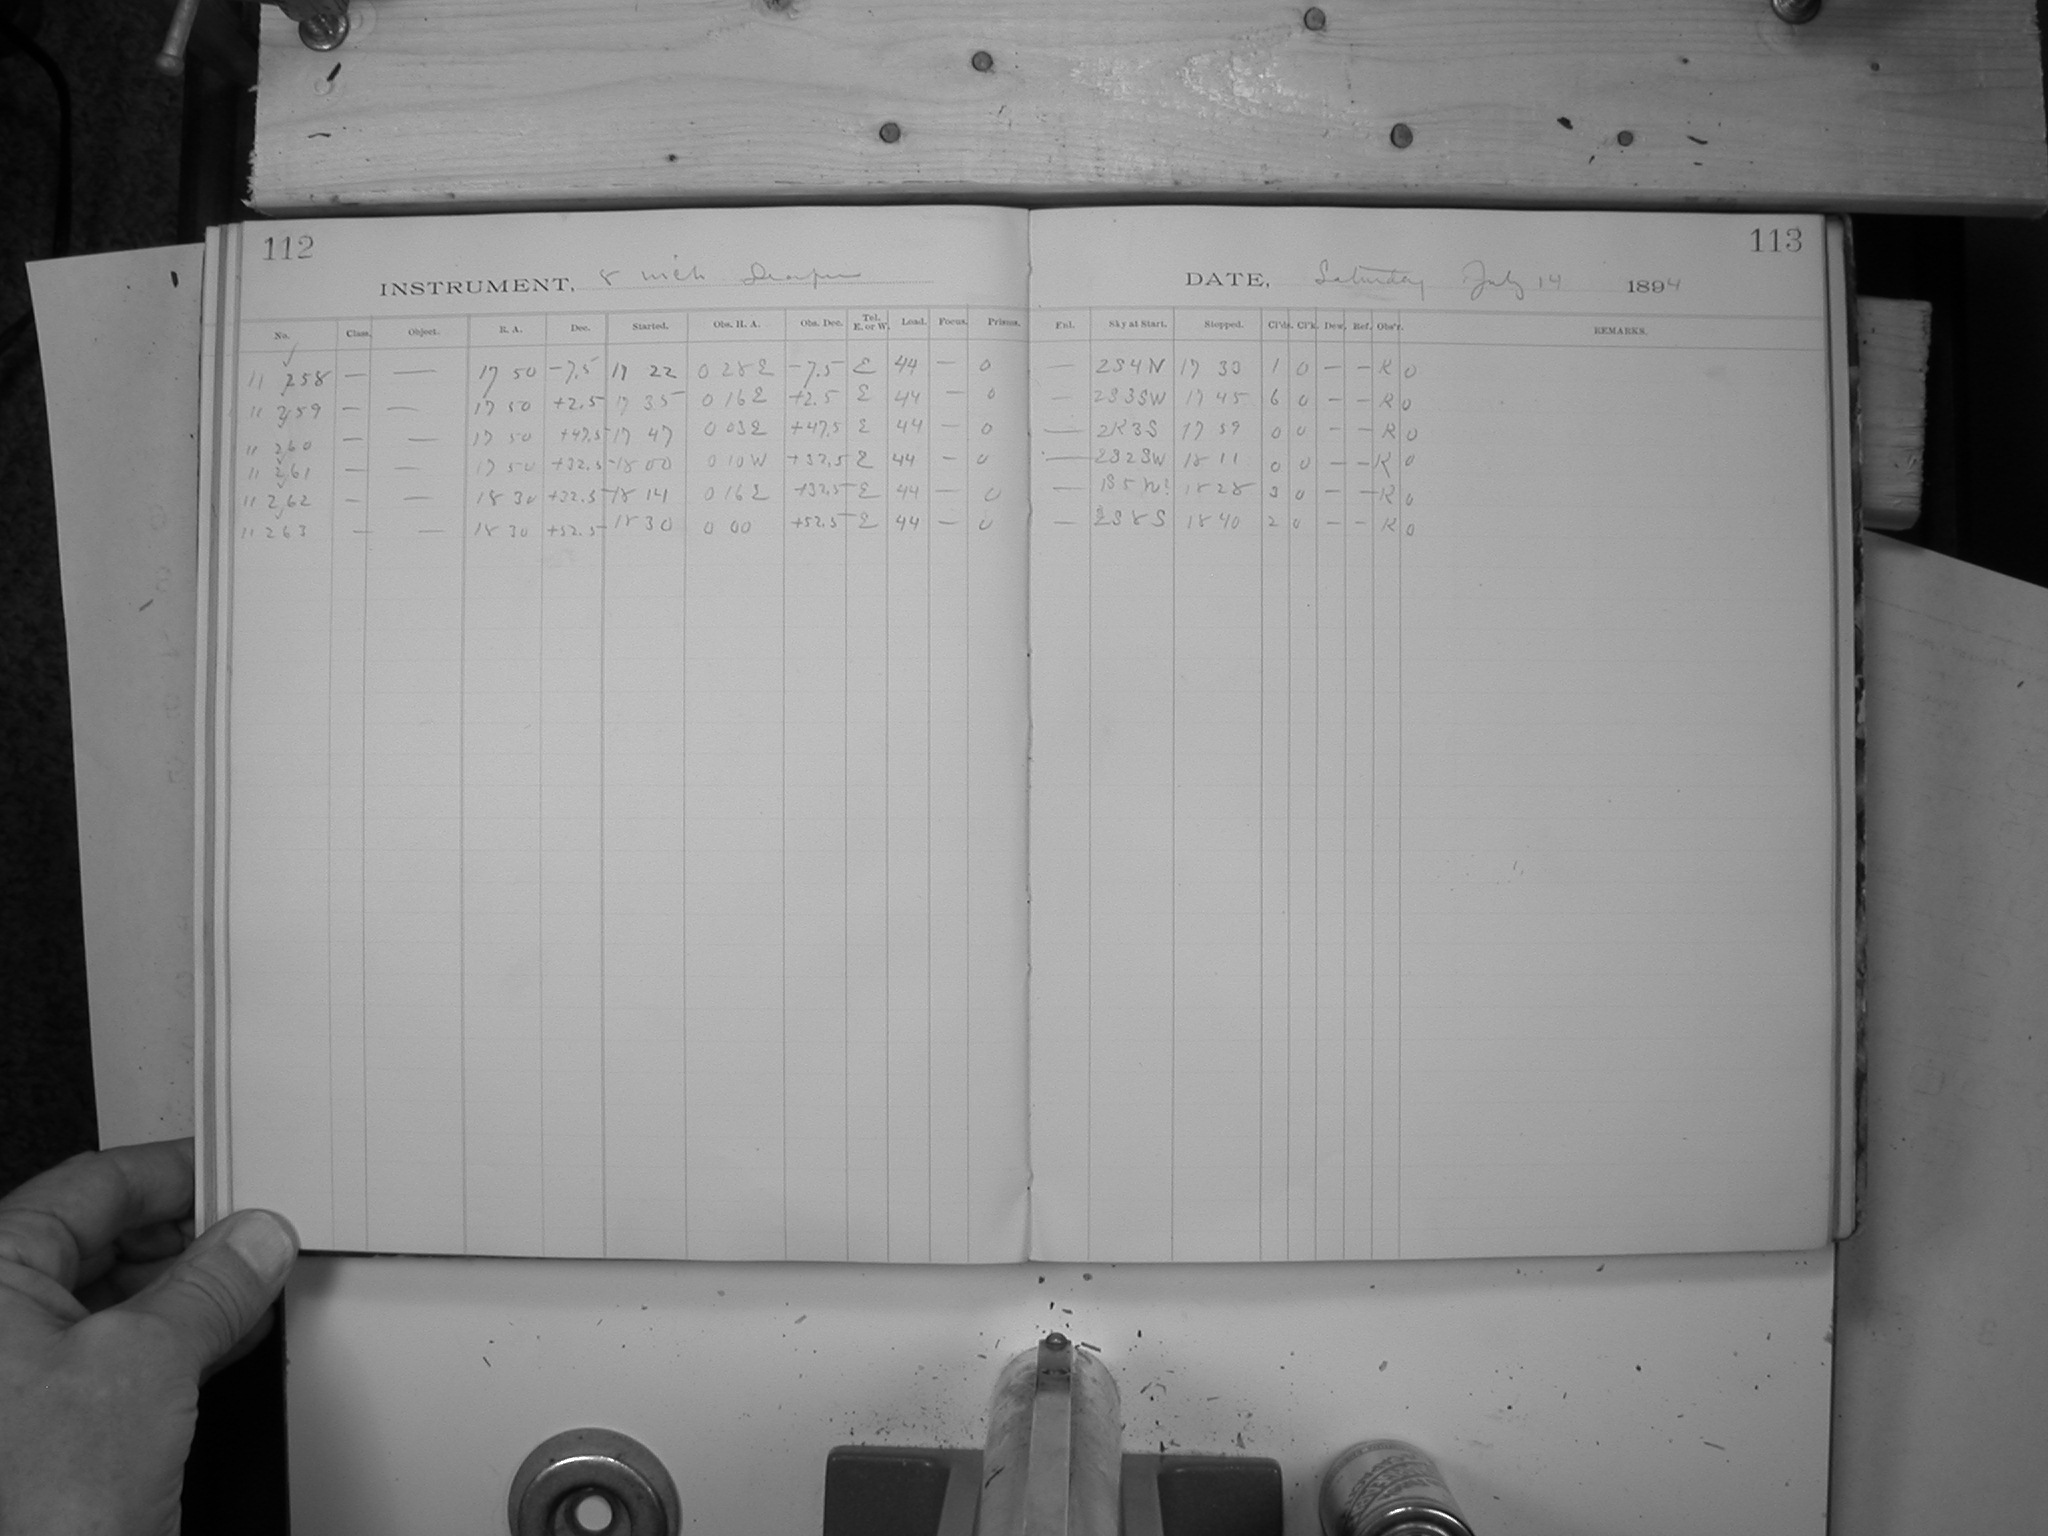 112
INSTRUMENT, 8 inch Draper
No. Class. Object. R. A. Dec. Started. Obs. H. A. Obs. Dec. Tel. E. or W. Load. Focus. Prisms.
11 258 — — 17 50 -7.5 17 22 0 28 E -7.5 E 44 — 0
11 259 — — 17 50 +2.5 17 35 0 16 E +2.5 E 44 — 0
11 260 — — 17 50 +47.5 17 47 0 03 E +47.5 E 44 — 0
11 261 — — 17 50 +32.5 18 00 0 10 W +32.5 E 44 — 0
11 262 — — 18 30 +32.5 18 14 0 16 E +32.5 E 44 — 0
11 263 — — 18 30 +52.5 18 30 0 00 +52.5 E 44 — 0
113
DATE, Saturday July 14 1894
Sky at Start. Stopped. Cl'ds. Cl'k. Dew. Ref. Obs'r. REMARKS.
— 2S4N 17 33 1 0 — — R 0
— 2S3SW 17 45 6 0 — — R 0
— 2R3S 17 59 0 0 — — R 0
— 2S2SW 18 11 0 0 — — R 0
— 18 28 3 0 — — R 0
— 2S8S 18 40 2 0 — — R 0